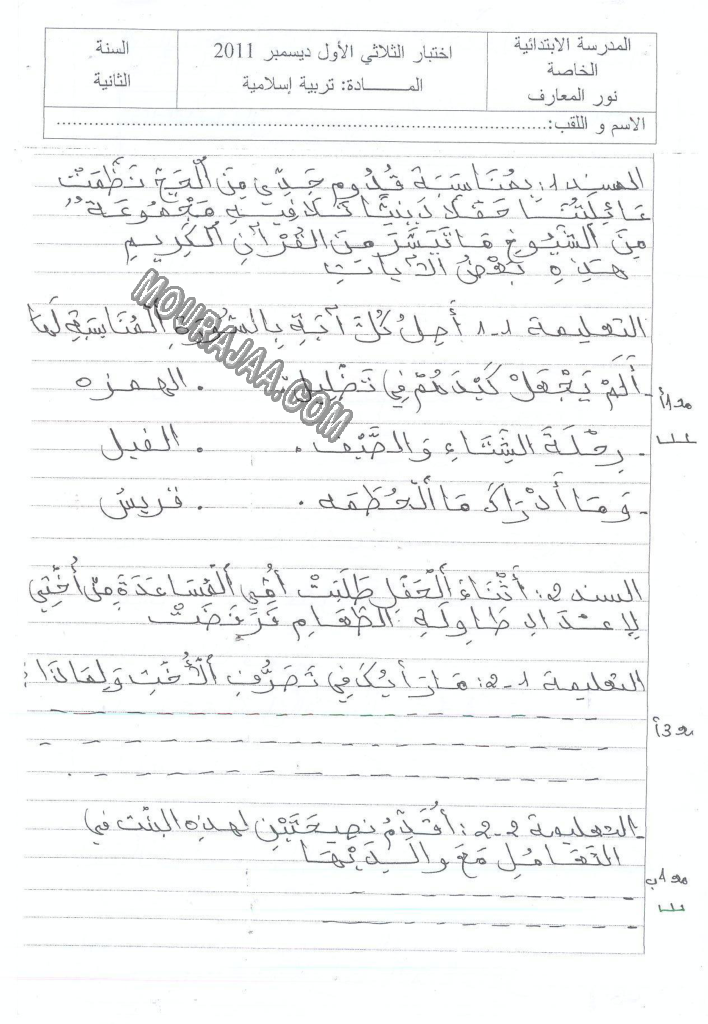 المدرسة الابتدائية
الخاصة
نور المعارف
اختبار الثلاثي الأول ديسمبر 2011
المــــادة: تربية إسلامية
السنة
الثانية
الاسم و اللقب:
السند 1: بِمُنَاسَبَةِ قُدُومِ جَدِّي مِنَ الْحَجِّ نَظَّمَتْ
عَائِلَتُنَا حَفْلًا دِينِيًّا تَلَا فِيهِ مَجْمُوعَةٌ
مِنَ الشُّيُوخِ مَا تَيَسَّرَ مِنَ الْقُرْآنِ الْكَرِيمِ
هَذِهِ بَعْضُ الْآيَاتِ
التعليمة 1-1 أَصِلُ كُلَّ آيَةٍ بِالسُّورَةِ الْمُنَاسَبَةِ لَهَا
- أَلَمْ يَجْعَلْ كَيْدَهُمْ فِي تَضْلِيلٍ . . الهمزه
- رِحْلَةَ الشِّتَاءِ وَالصَّيْفِ . . الفيل
- وَمَا أَدْرَاكَ مَا الْحُطَمَه . . قريش
مع1أ
السند 2: أَثْنَاءَ الْحَفْلِ طَلَبَتْ أُمِّي الْمُسَاعَدَةَ مِنْ أُخْتِي
لِإِعْدَادِ طَاوِلَةِ الطَّعَامِ فَرَفَضَتْ
التعليمة 1-2: مَا رَأْيُكَ فِي تَصَرُّفِ الْأُخْتِ وَلِمَاذَا؟
مع3أ
- التعليمة 2-2: أُقَدِّمُ نَصِيحَتَيْنِ لِهذِهِ البنْت فِي
التَّعَامُلِ مَعَ وَالِدَيْهَا
مع1ب
MOURAJAA.COM